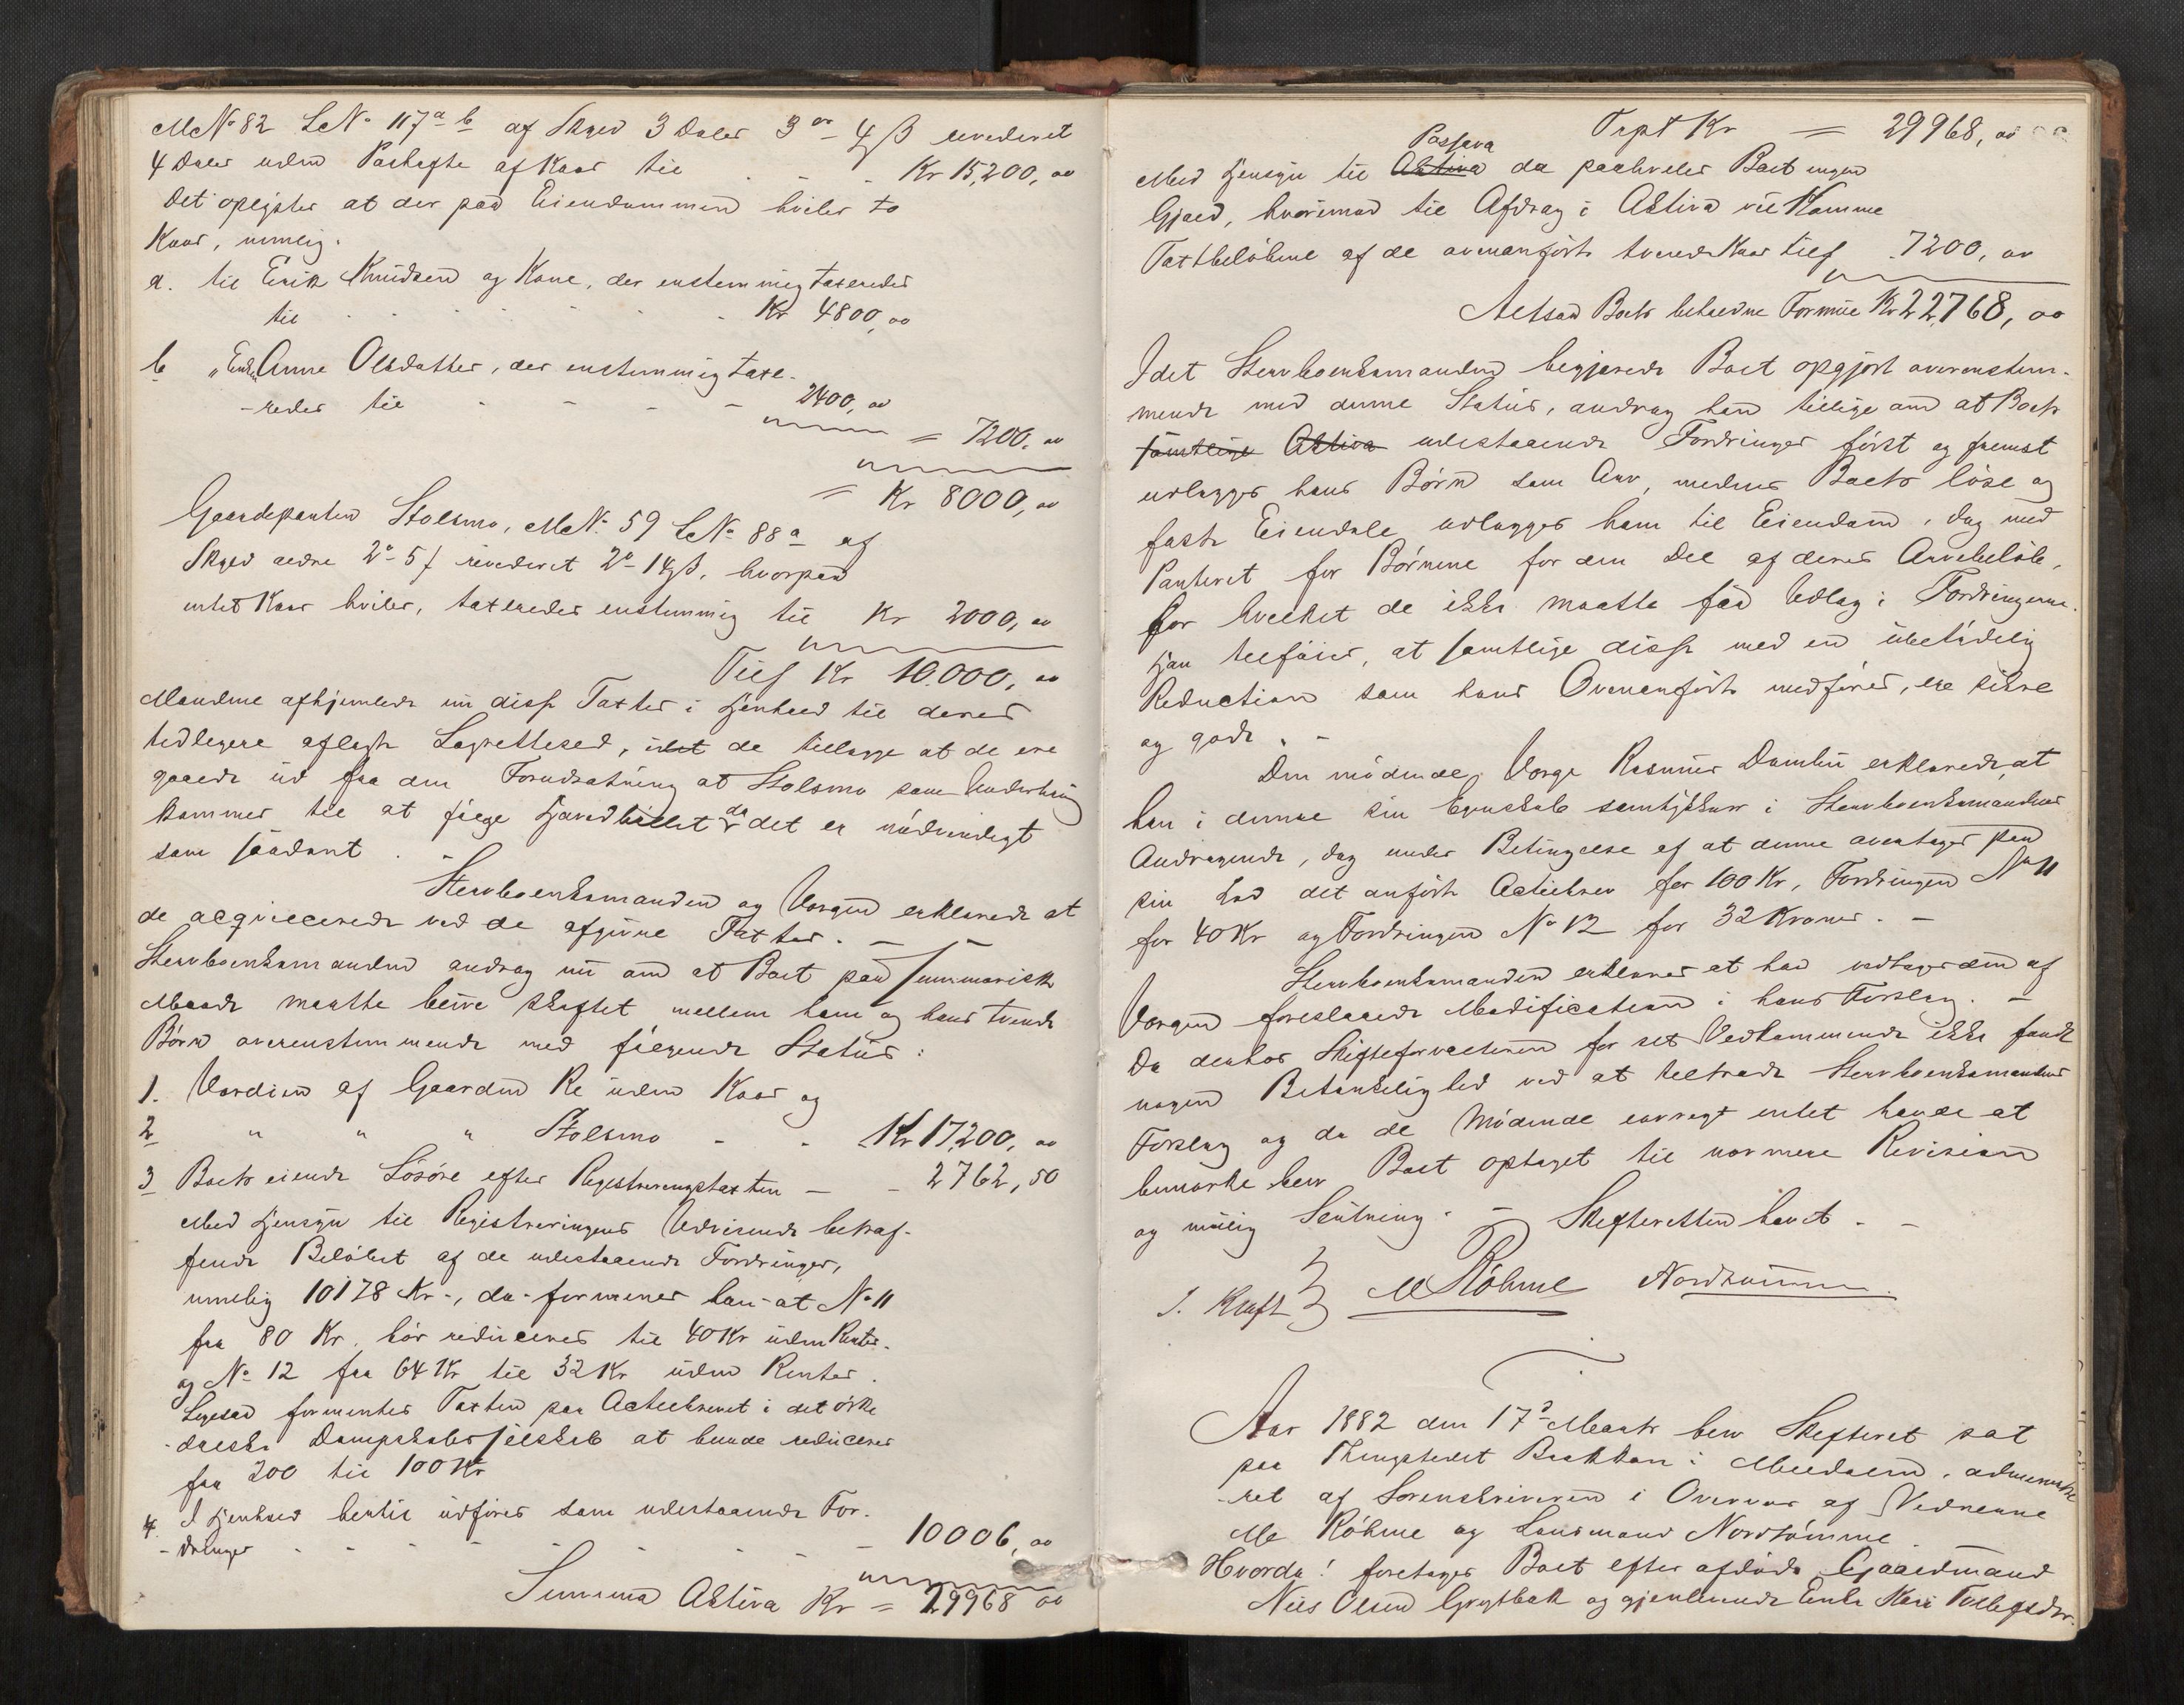 MNo 82 LNo 117a b af Skyld 3 Daler 3 or 4 ß revideret
4 Daler uden Paahefte af Kaar til - - - Kr 15,200, 00
Det oplystes at der paa Eiendommen hviler to
Kaar, nemlig.
a. til Erik Knudsen og Kone, der enstemmig taxeredes
til - - - - - Kr 4800, 00
b " Enken Anne Olsdatter, der enstemmig taxe-
-redes til - - - - 2400, 00
= 7200, 00
= Kr 8000, 00
Gaardeparten Stolsmo, MNo 59 LNo 88a af
Skyld ældre 2o- 5 ß revideret 2o- 14 ß, hvorpaa
intet Kaar hviler, taxeredes enstemmig til Kr 2000, 00
Tils Kr 10.000, 00
Mændene afhjemlede nu disse Taxter i Henhold til deres
tidligere aflagte Lagrettesed, idet de tillagge at de ere
gaaede ud fra den Forudsætning at Stolsmo som Underbrug
kommer til at følge Hovedbøllet da det er nødvendigt
som saadant. -
Stervboenkemanden og Værgen erklærede at
de acqviecerede ved de afgivne Taxter. -
Stervboenkemanden androg nu om at Boet paa summarisk
Maade maatte blive skiftet mellem ham og hans tvende
Børn overenstemmende med følgende Status:
1. Værdien af Gaarden Re uden Kaar og
2 " " " Stolsmo - - Kr 17,200, 00
3 Boets eiende Løsøre efter Registreringstaxten - - 2762, 50
Med Hensyn til Registreringens Udvisende betræf-
fende Beløbet af de udestaaende Fordringer,
nemlig 10178 Kr -, da formener han at No 11
fra 80 Kr. bør reduceres til 40 Kr uden Renter
og No 12 fra 64 Kr til 32 Kr uden Renter.
Ligesaa formentes Taxten paa Actiebrevet i det ørke
-dalske Dampskibsselskab at burde reduceres
fra 200 til 100 Kr
4. I Henhold hertil udføres som udestaaende For-
-dringer - - - - - - - 10006, 00
Summa Aktiva Kr = 29968 00
Trpt Kr = 29968, 00
Med Hensyn til Aktiva Passiva da paahviler Boet ingen
Gjæld, hvorimod til Afdrag i Aktiva vil komme
Taxtbeløbene af de ovenanførte tvende Kaar tils 7200, 00
Altsaa Boets beholdne Formue Kr 22,768, 00
Idet Stervboenkemanden begjærede Boet opgjort overenstem-
mende med denne Status, androg han tillige om at Boets
samtlige Aktiva udestaaende Fordringer først og fremst
udlægges hans Børn som Arv, medens Boets løse og
faste Eiendele udlægges ham til Eiendom, dog med
Panteret for Børnene for den Del af deres Arvebeløb,
for hvilket de ikke maatte faa Udlæg i Fordringerne.
Han tilføier, at samtlige disse med en ubetydelig
Reduction som hans Ovenanførte medfører, ere sikre
og gode. -
Den mødende Værge Rasmus Damli erklærede, at
han i denne sin Egenskab samtykker i Stervboenkemandens
Andragende, dog under Betingelse af at denne overtager paa
sin Lod det anførte Actiebrev for 100 Kr, Fordringen No 11
for 40 Kr og Fordringen No 12 for 32 Kroner. -
Stervboenkemanden erklærer at han vedtager den af
Værgen foreslaaede Modification i hans Forslag. -
Da derhos Skifteforvalteren for sit Vedkommende ikke fandt
nogen Betænkelighed ved at tiltræde Stervboenkemandens
Forslag og da de Mødende iøvrigt intet havde at
bemærke blev Boet optaget til nærmere Revision
og mulig Slutning. - Skifteretten hævet. -
J. Kraft M Røhme Nordtømme
Aar 1882 den 17de Marts blev Skifteret sat
paa Thingstedet Bakken i Meldalen, administre
-ret af Sorenskriveren i Overvær af Vidnerne
M Røhme og Lensmand Nordtømme
Hvorda! foretages Boet efter afdøde Gaardmand
Nils Olsen Grytbak og gjenlevende Enke Kari Tollefsdr.